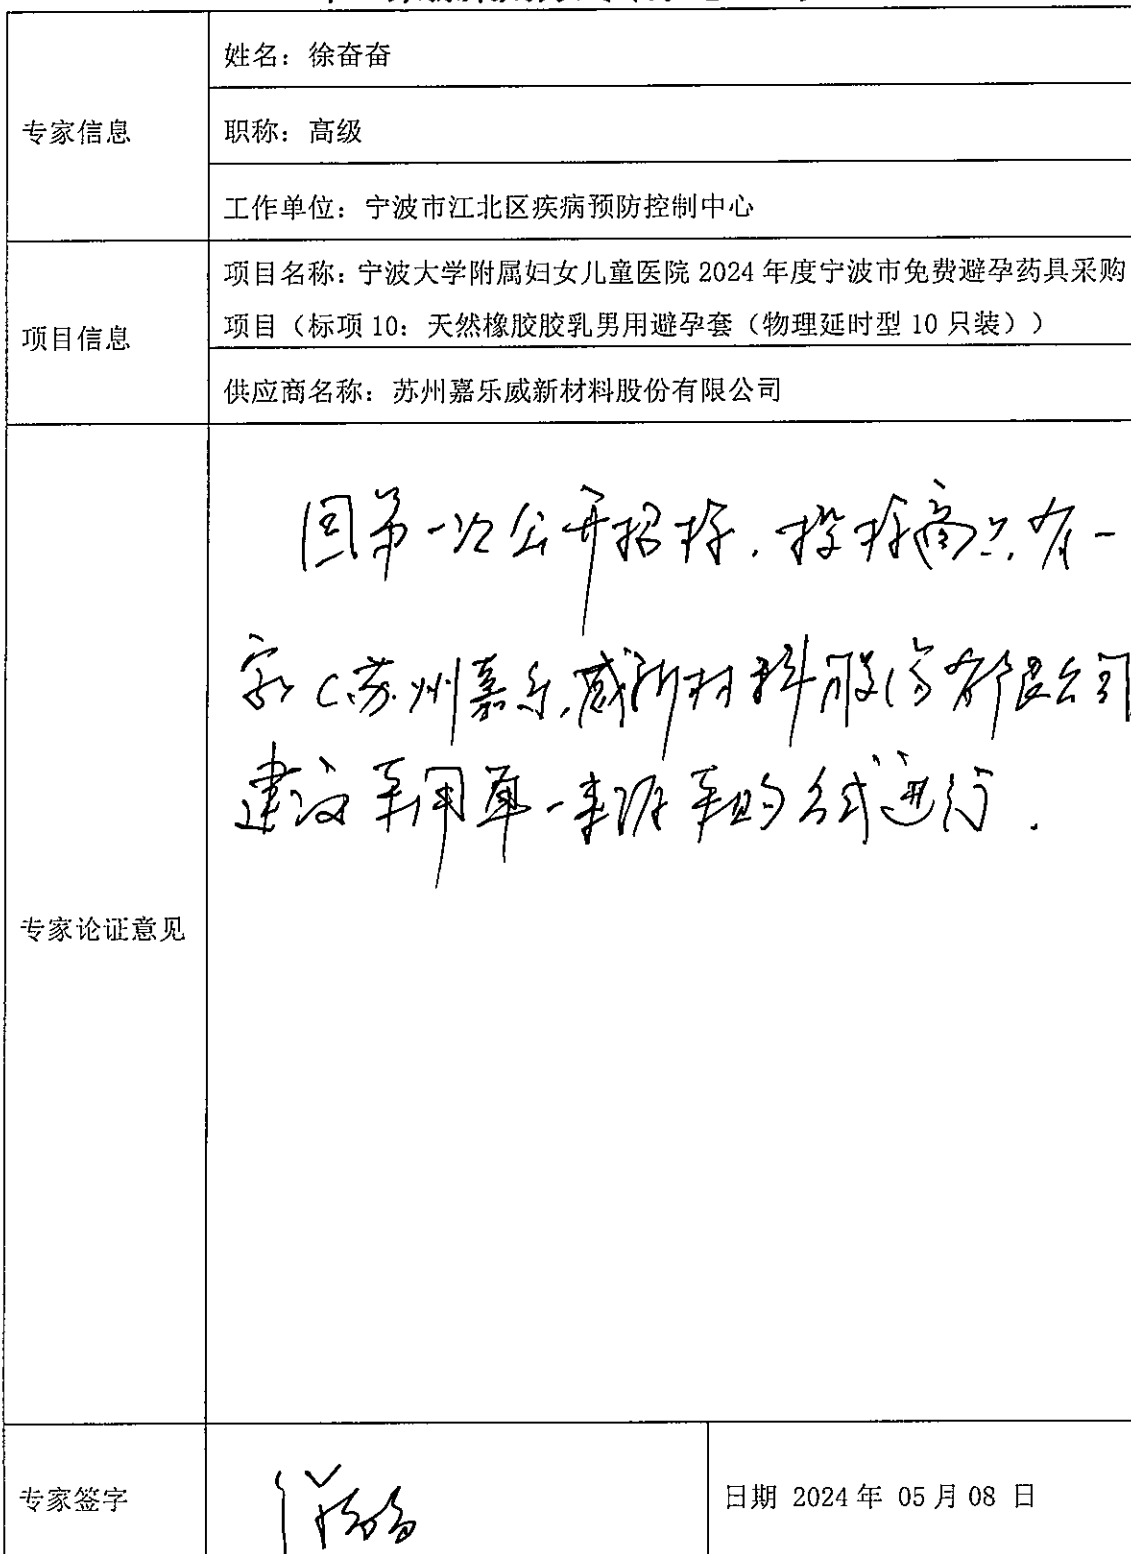 姓名：徐奋奋
专家信息
职称：高级
工作单位：宁波市江北区疾病预防控制中心
项目信息
项目名称：宁波大学附属妇女儿童医院 2024 年度宁波市免费避孕药具采购
项目（标项 10：天然橡胶胶乳男用避孕套（物理延时型 10 只装））
供应商名称：苏州嘉乐威新材料股份有限公司
专家论证意见
因第一次公开招标，投标商只有一
家（苏州嘉乐威新材料股份有限公司
建议采用单一来源采购方式进行.
专家签字
徐奋奋
日期 2024 年 05 月 08 日